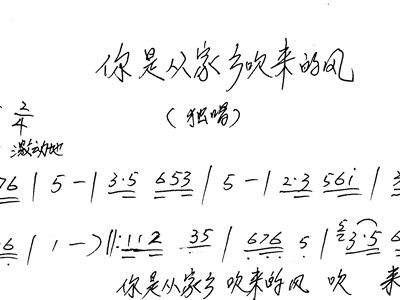 你是从家乡吹来的风
(独唱)
2/4
激动地
76 | 5 - | 3·5 653 | 5 - | 2·3 56i | 3
·6 | 1 - ) ‖: 112 35 | 676 5 | 3·5 6
你是从家乡吹来的风 吹 来